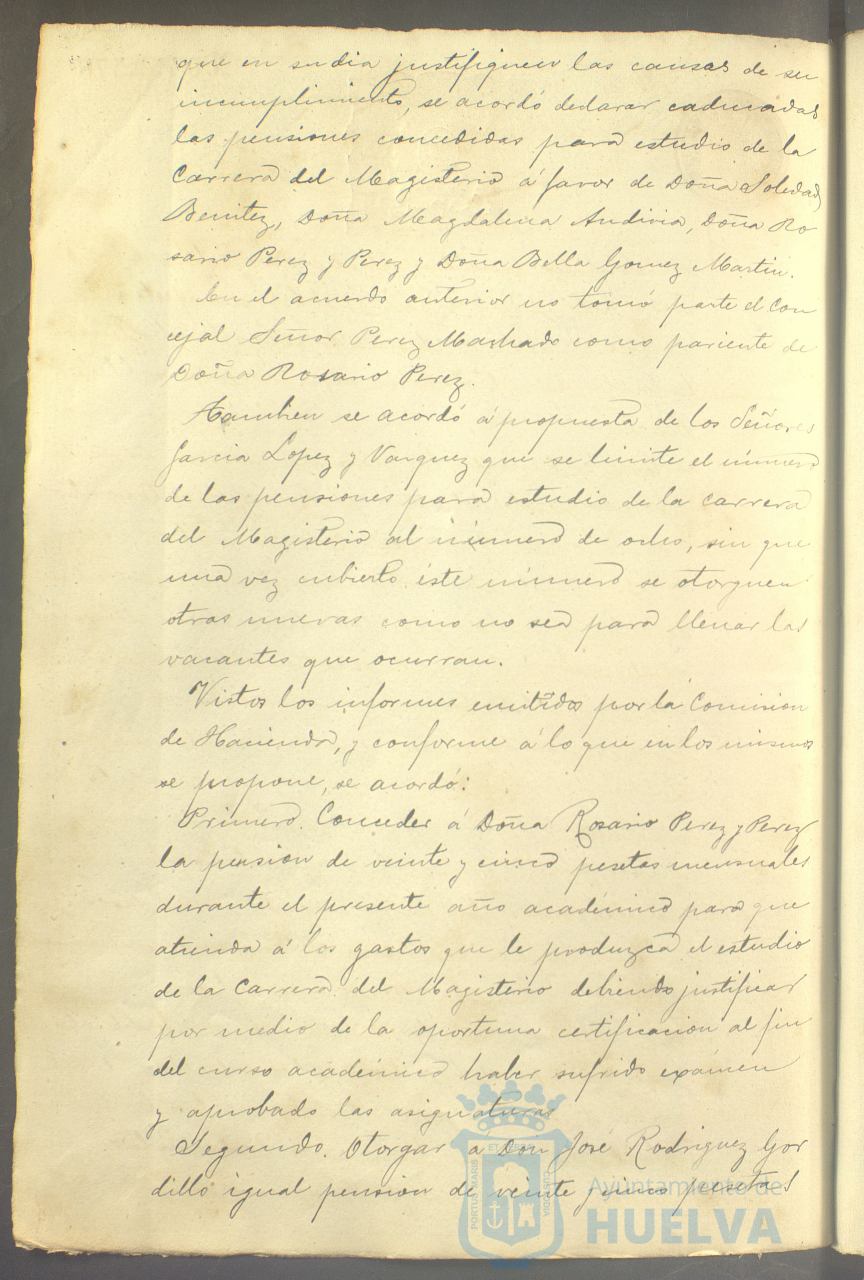 que en su dia justifiquen las causas de su
incumplimiento, se acordó declarar caducadas
las pensiones concedidas para estudio de la
Carrera del Magisterio á favor de Doña Soledad
Benitez, Doña Magdalena Andivia, Doña Ro
sario Perez y Perez y Doña Bella Gomez Martin.
En el acuerdo anterior no tomó parte el Con
cejal Señor Perez Machado como pariente de
Doña Rosario Perez.
Tambien se acordó á propuesta de los Señores
Garcia Lopez y Vazquez que se limite el número
de las pensiones para estudio de la carrera
del Magisterio al número de ocho, sin que
una vez cubierto éste número se otorguen
otras nuevas como no sea para llenar las
vacantes que ocurran.
Vistos los informes emitidos por la Comision
de Hacienda, y conforme á lo que en los mismos
se propone, se acordó:
Primero. Conceder á Doña Rosario Perez y Perez
la pension de veinte y cinco pesetas mensuales
durante el presente año académico para que
atienda á los gastos que le produzca el estudio
de la Carrera del Magisterio debiendo justificar
por medio de la oportuna certificacion al fin
del curso académico haber sufrido exámen
y aprobado las asignaturas
Segundo. Otorgar a Don José Rodriguez Gor
dillo igual pension de veinte y cinco pesetas
PORTUS MARIS
CUSTODIA
Ayuntamiento de
HUELVA